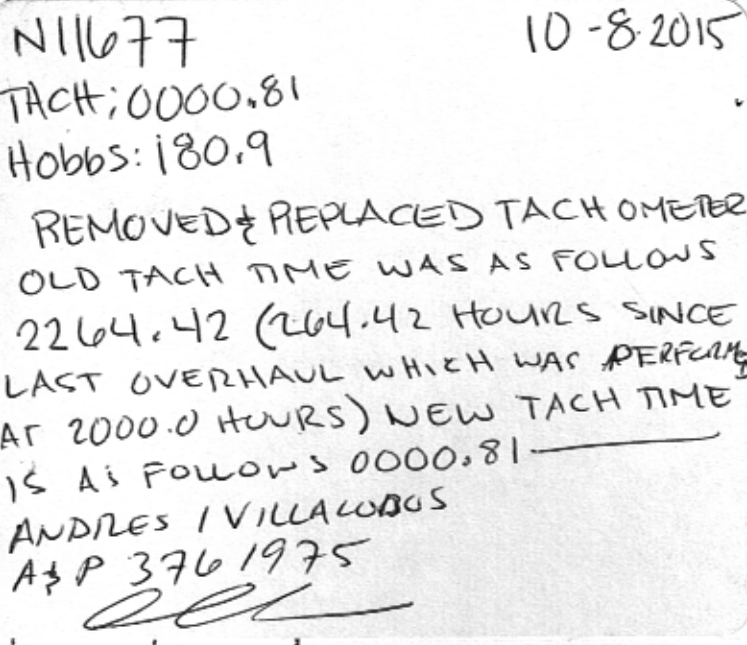 N11677 10-8-2015
TACH; 0000.81
Hobbs: 180.9
REMOVED & REPLACED TACHOMETER
OLD TACH TIME WAS AS FOLLOWS
2264.42 (264.42 HOURS SINCE
LAST OVERHAUL WHICH WAS PERFORMED
AT 2000.0 HOURS) NEW TACH TIME
IS AS FOLLOWS 0000.81
ANDRES I VILLALOBOS
A&P 3761975